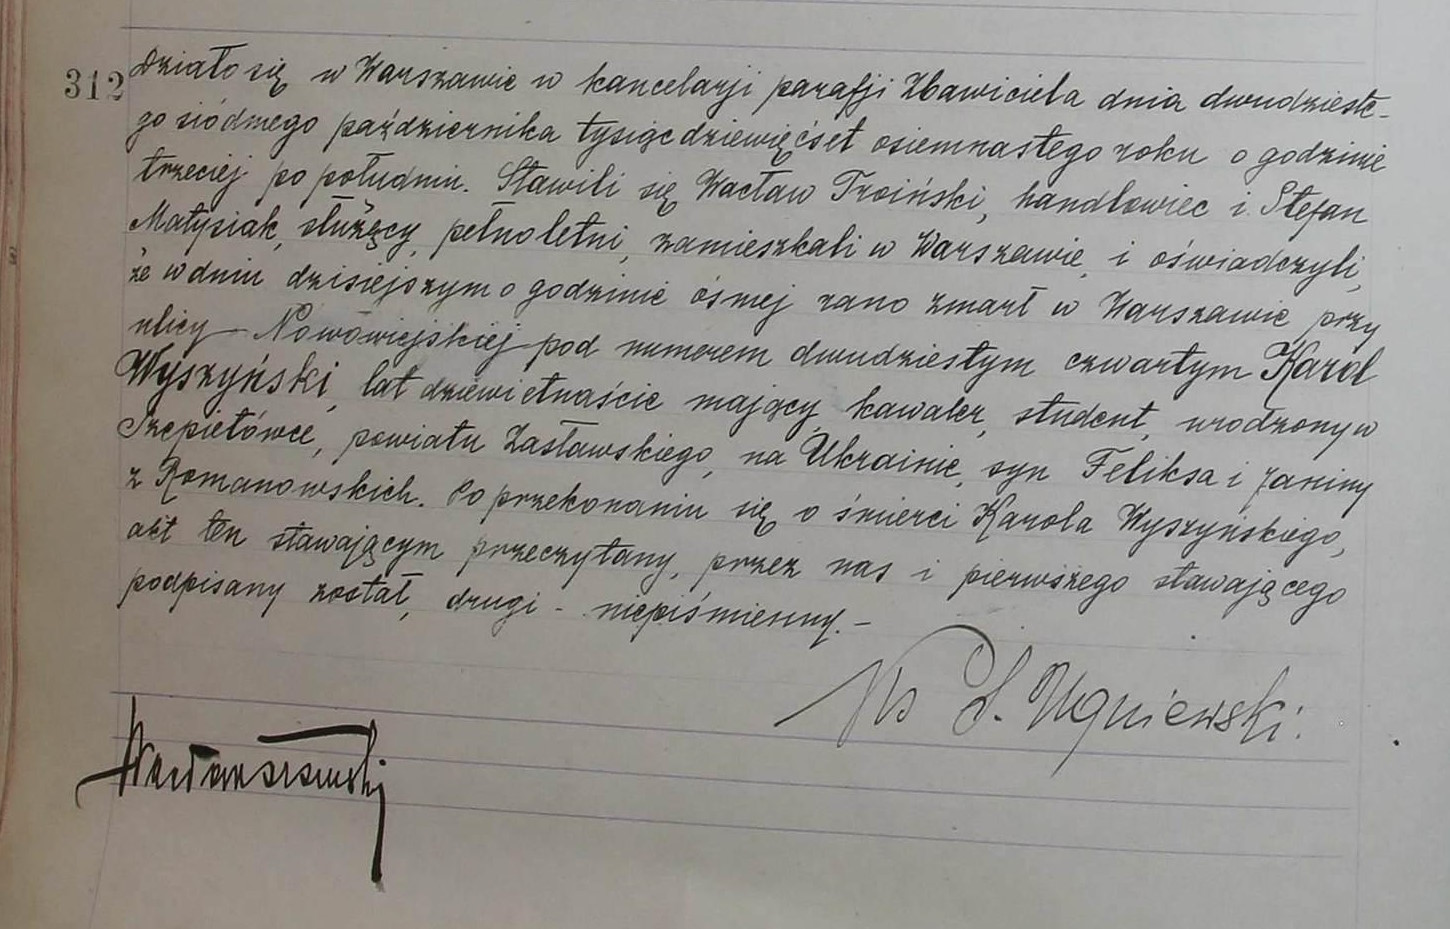 312 Działo się w Warszawie w kancelarji parafji Zbawiciela dnia dwudzieste-
go siódmego października tysiąc dziewięćset osiemnastego roku o godzinie
trzeciej po południu. Stawili się Wacław Troiński, handlowiec i Stefan
Matysiak, służący, pełnoletni, zamieszkali w Warszawie, i oświadczyli,
że w dniu dzisiejszym o godzinie ósmej rano zmarł w Warszawie, przy
ulicy Nowowiejskiej pod numerem dwudziestym czwartym Karol
Wyszyński, lat dziewiętnaście mający, kawaler, student, urodzony w
Szepietówce, powiatu Zasławskiego, na Ukrainie, syn Feliksa i Janiny
z Romanowskich. Po przekonaniu się o śmierci Karola Wyszyńskiego,
akt ten stawającym przeczytany, przez nas i pierwszego stawającego
podpisany został, drugi - niepiśmienny. -